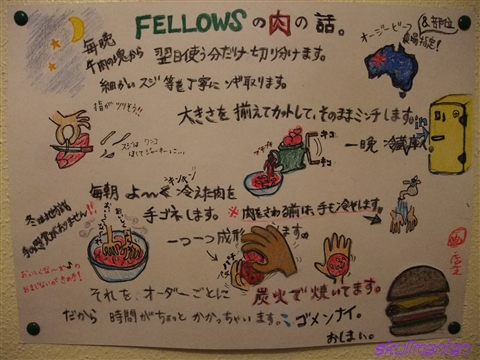 FELLOWSの肉の話。
オージービーフ
&部位
農場指定!
毎晩
牛肉の塊から 翌日使う分だけ切り分けます。
細かいスジ等を丁寧にソギ取ります。
指がツリそう!!
大きさを揃えてカットして、そのままミンチします。
スジは ワンコ
キコ
キコ
一晩 冷蔵庫
in
毎朝 よ〜く冷えた肉を
キンキン
手ゴネします。 ※肉をさわる前は、手も冷やします。
冬は地獄
おいしくな〜れ♪の
おまじないが きめ手!
一つ一つ成形 します。
それを、オーダーごとに 炭火で焼いてます。
だから 時間がちょっと かかっちゃいます。ゴメンナイ。
おしまい。